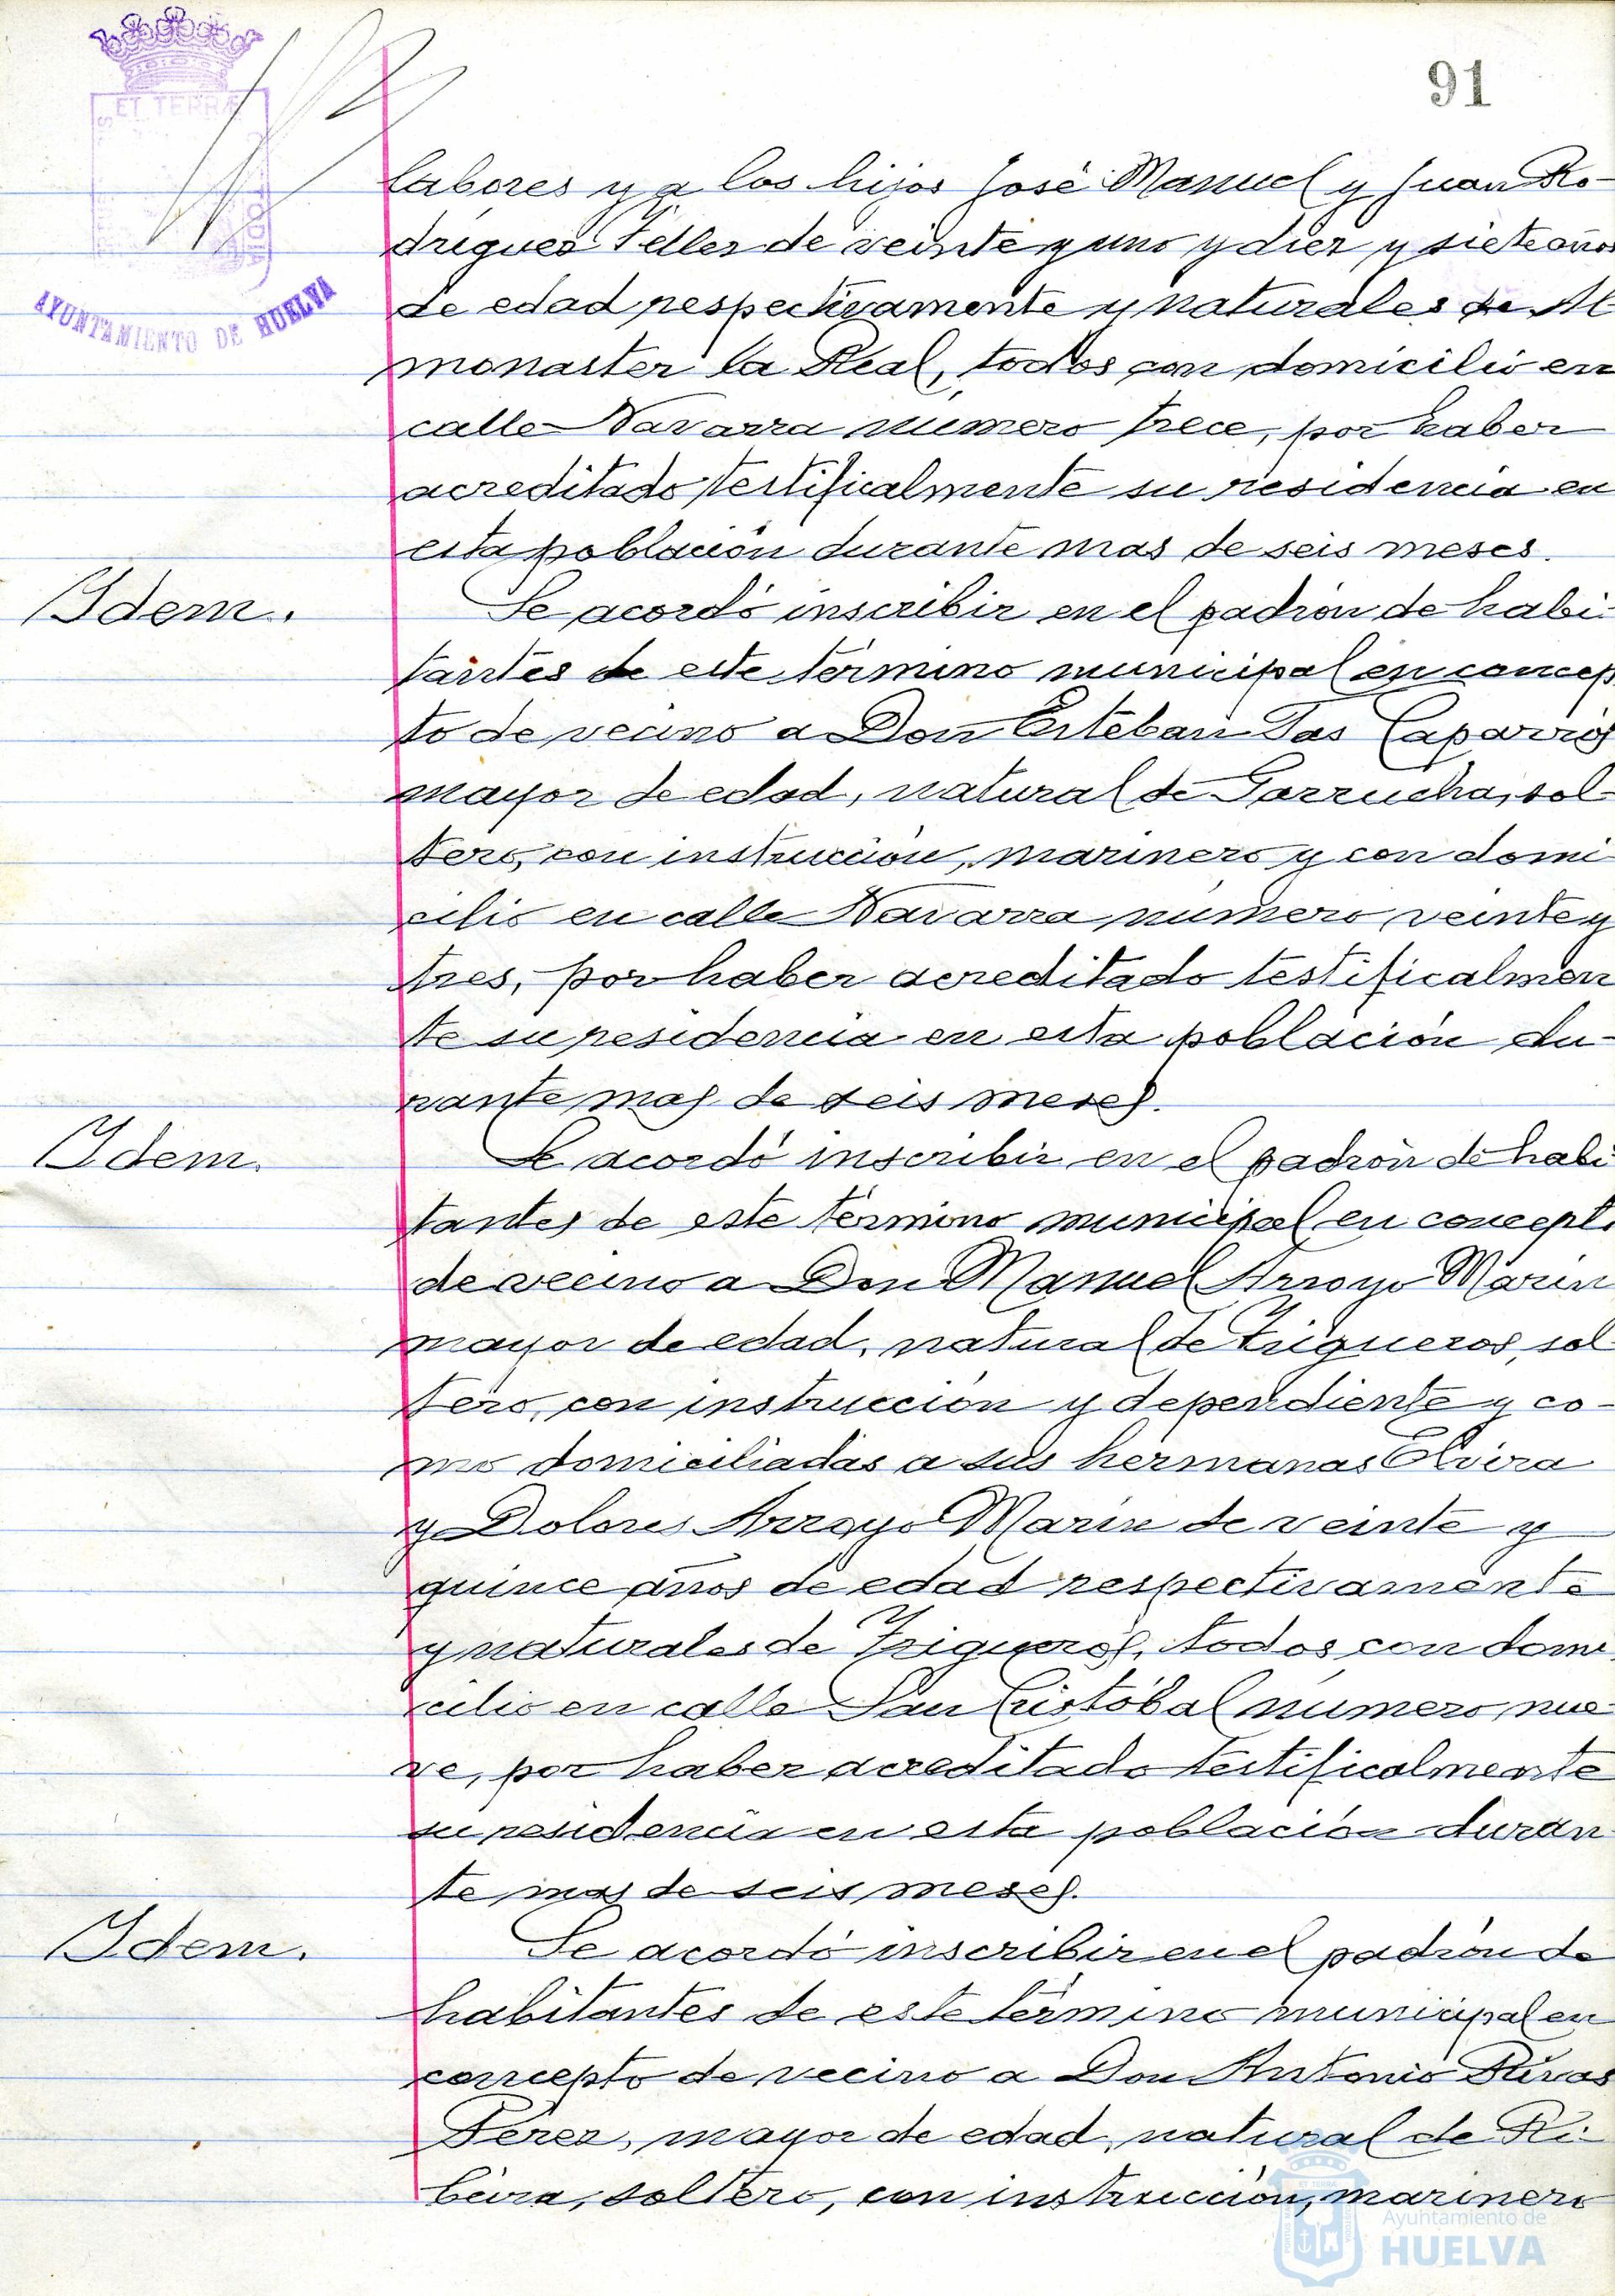 91
ET TERRÆ
AYUNTAMIENTO DE HUELVA
labores y a los hijos José Manuel y Juan Ro-
drigues Teller de veinte y uno y diez y siete años
de edad respectivamente y naturales de Al-
monaster la Real, todos con domicilio en
calle Navarra número trece, por haber
acreditado testificalmente su residencia en
esta población durante mas de seis meses.
Idem.
Se acordó inscribir en el padrón de habi-
tantes de este término municipal en concep
to de vecino a Don Esteban Tas Caparrós
mayor de edad, natural de Garrucha, sol-
tero, con instrucción, marinero y con domi
cilio en calle Navarra número veinte y
tres, por haber acreditado testificalmen
te su residencia en esta población du-
rante mas de seis meses.
Idem.
Se acordó inscribir en el padrón de habi
tantes de este término municipal en concepto
de vecino a Don Manuel Arroyo Marin
mayor de edad, natural de Trigueros, sol-
tero, con instrucción y dependiente y co-
mo domiciliadas a sus hermanas Elvira
y Dolores Arroyo Marin de veinte y
quince años de edad respectivamente
y naturales de Trigueros, todos con domi
cilio en calle San Cristóbal número nue-
ve, por haber acreditado testificalmente
su residencia en esta población duran
te mas de seis meses.
Idem.
Se acordó inscribir en el padrón de
habitantes de este término municipal en
concepto de vecino a Don Antonio Rivas
Pérez, mayor de edad, natural de Ri-
beira, soltero, con instrucción, marinero
Ayuntamiento de
HUELVA